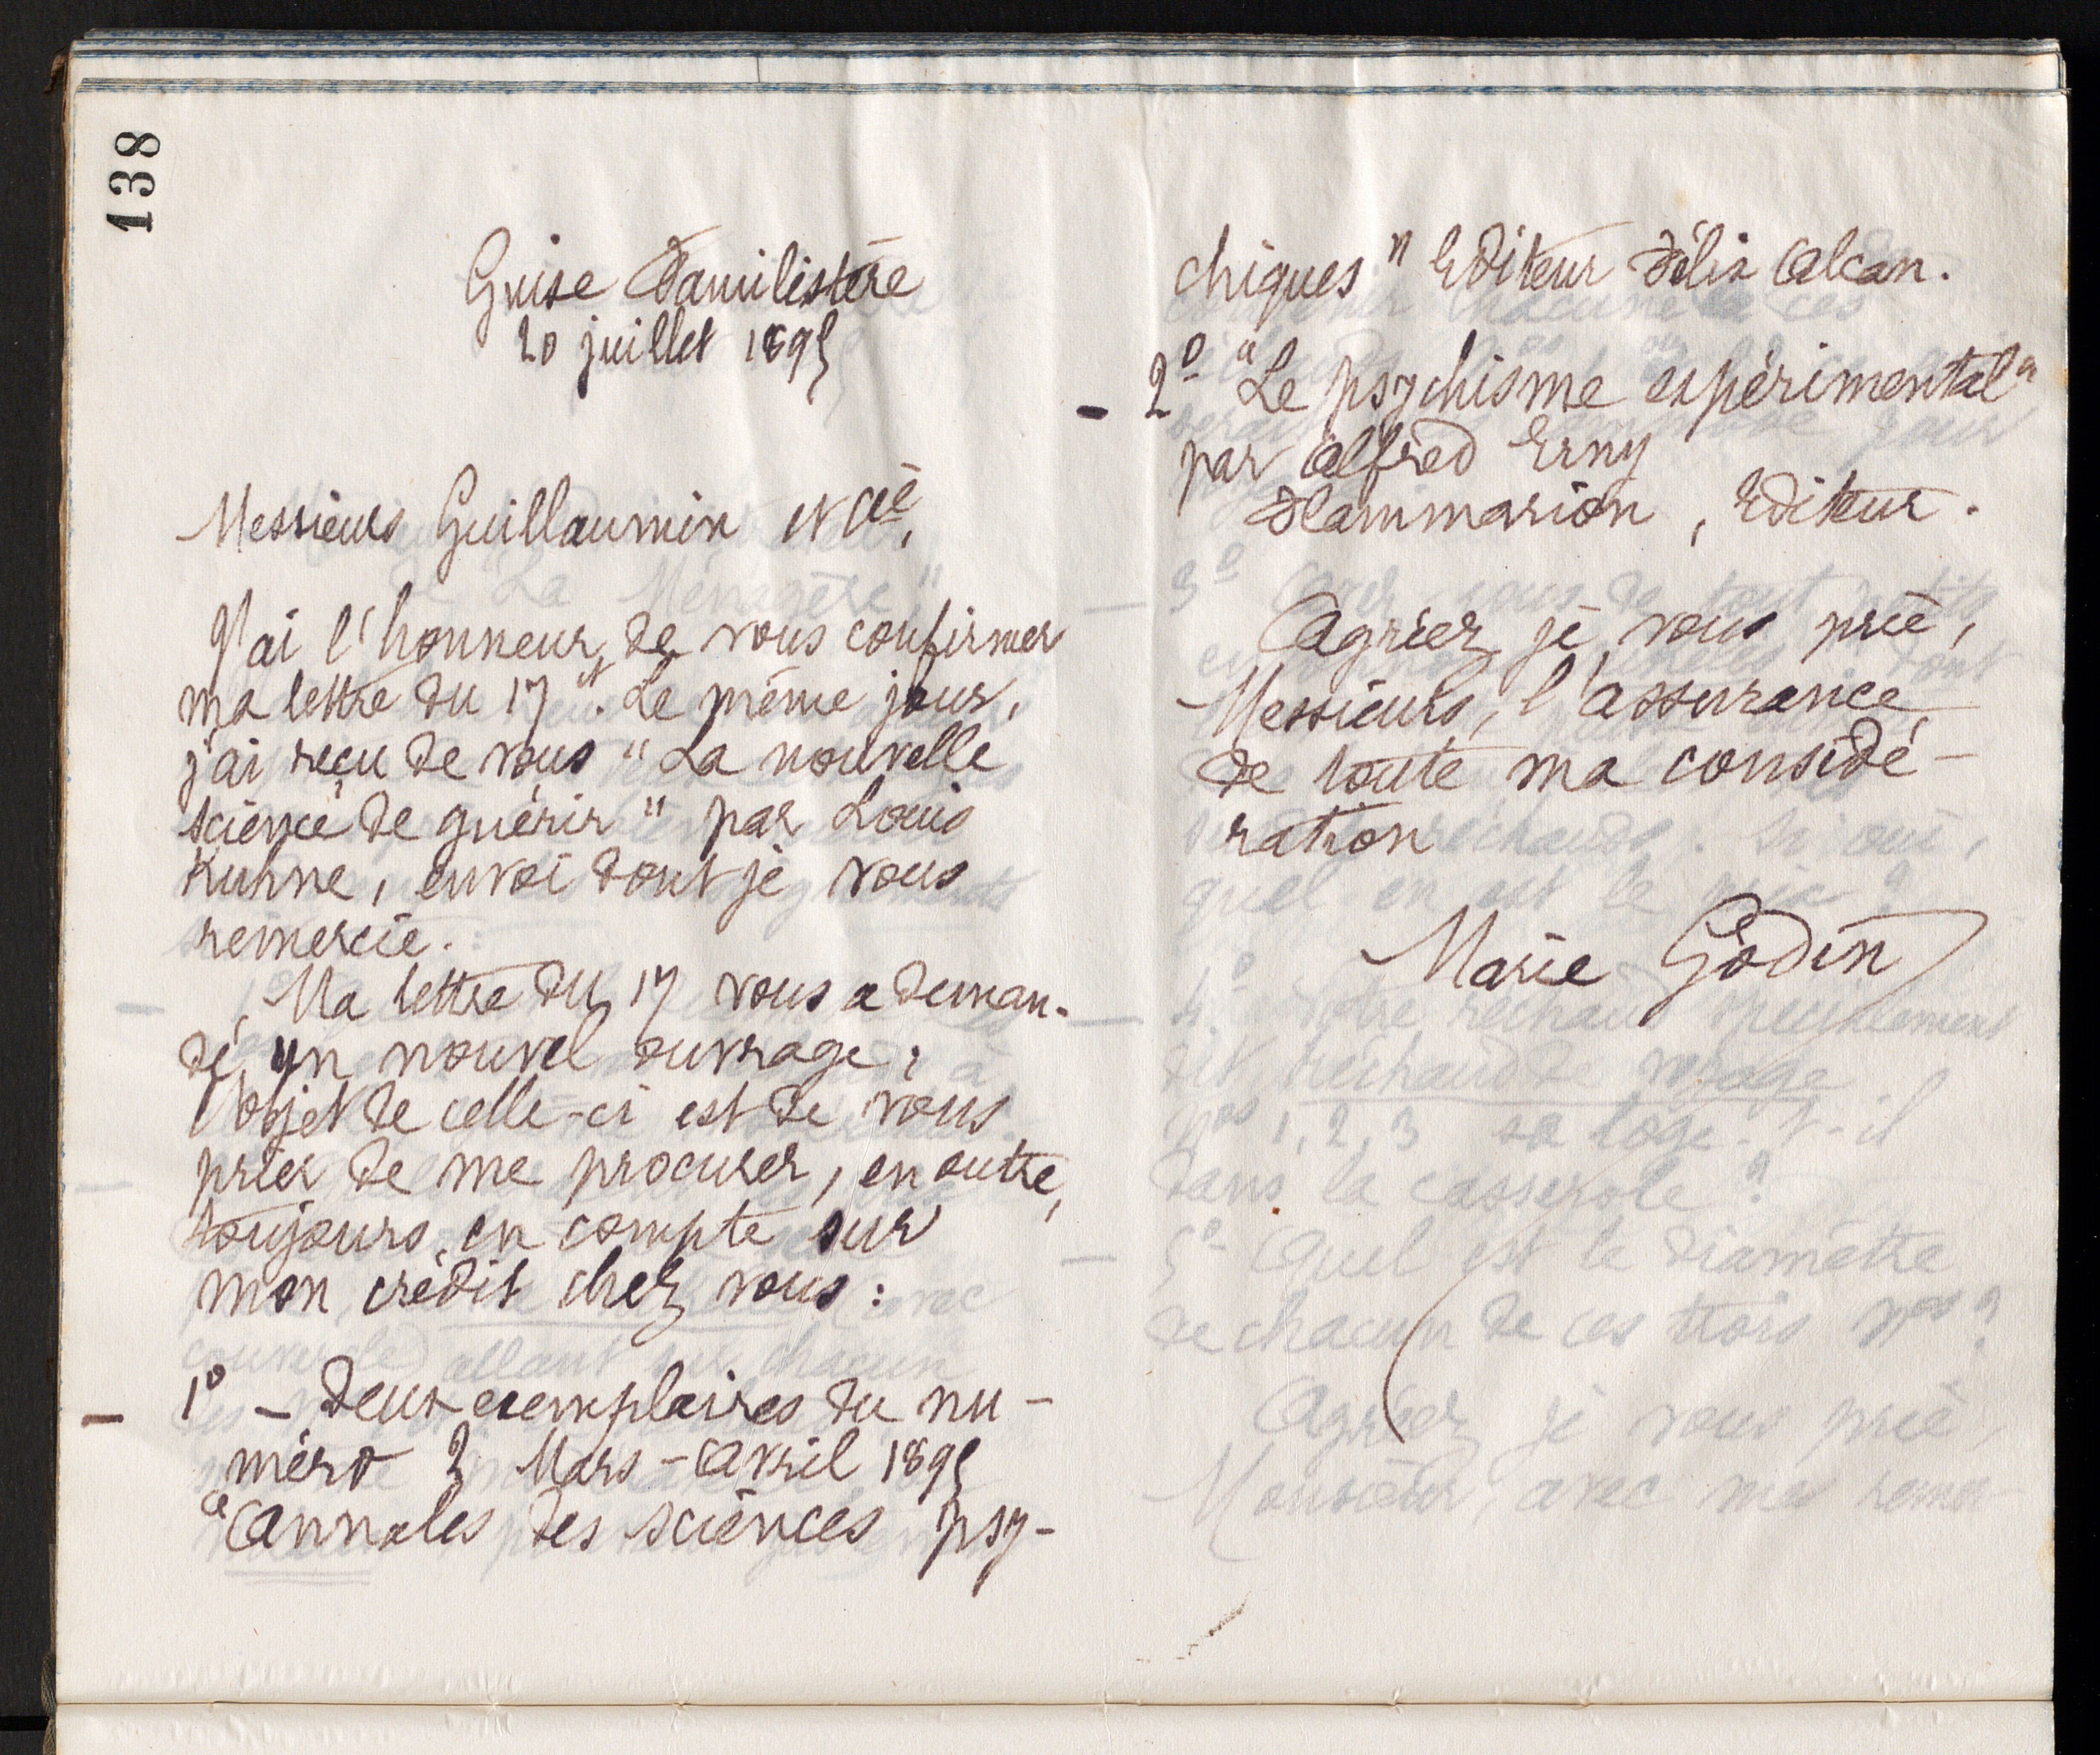 138
Guise Familistère
20 juillet 1895
Messieurs Guillaumin et Cie,
J'ai l'honneur de vous confirmer
ma lettre du 17 ct. Le même jour,
j'ai reçu de vous "La nouvelle
science de guérir" par Louis
Kuhne, envoi dont je vous
remercie.
Ma lettre du 17 vous a deman-
dé un nouvel ouvrage;
l'objet de celle-ci est de vous
prier de me procurer, en outre,
toujours en compte sur
mon crédit chez vous:
- 1° - deux exemplaires du nu-
méro 2 Mars-Avril 1895
"Annales des sciences psy-
chiques" Editeur Félix Alcan.
- 2° "Le psychisme expérimental"
par Alfred Erny
Flammarion, Editeur.
Agréez, je vous prie,
Messieurs, l'assurance
de toute ma considé-
ration
Marie Godin